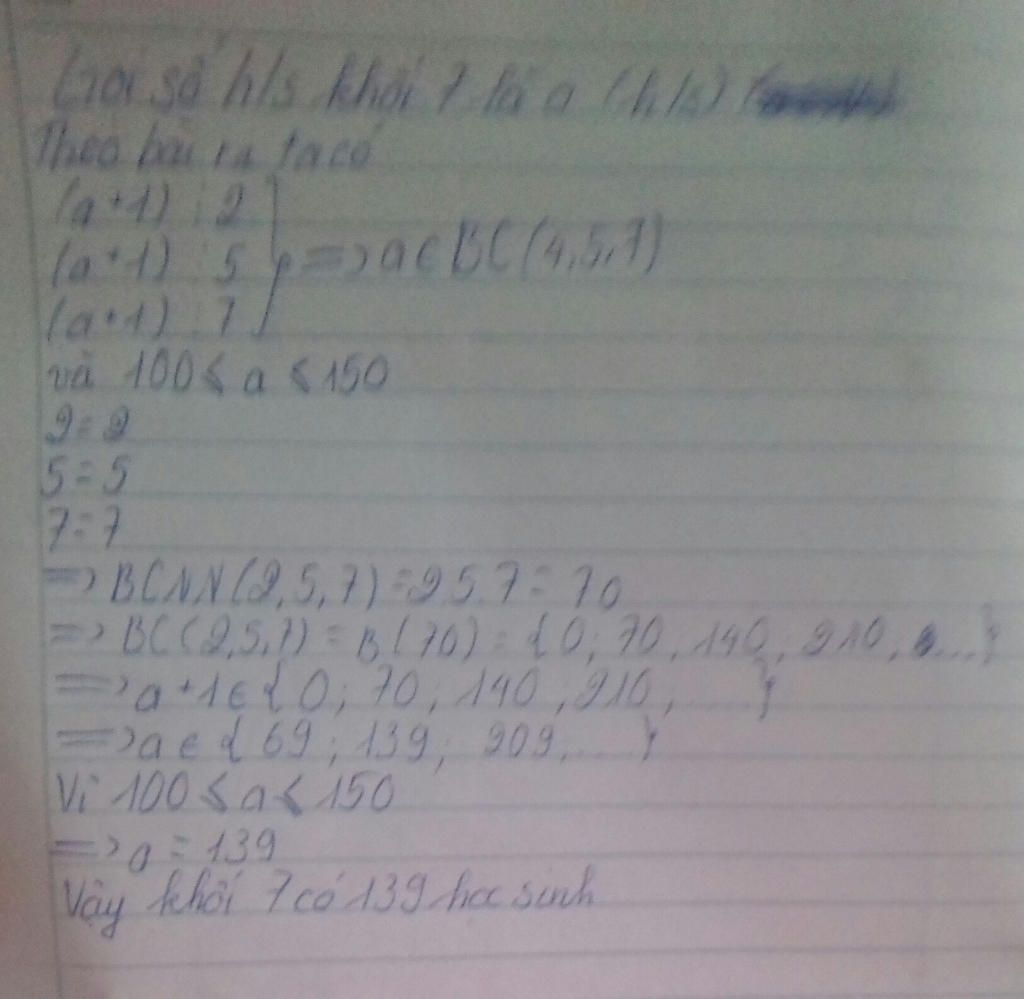 Gọi số h/s khối 7 là a (h/s)
Theo bài ra ta có
(a+1) ⋮ 2
(a+1) ⋮ 5
(a+1) ⋮ 7
} => a ∈ BC(4,5,7)
và 100 ≤ a ≤ 150
2 = 2
5 = 5
7 = 7
=> BCNN(2,5,7) = 2.5.7 = 70
=> BC(2,5,7) = B(70) = {0; 70, 140; 210, ....}
=> a+1 ∈ {0; 70; 140, 210, ....}
=> a ∈ {69; 139; 209, .... }
Vì 100 ≤ a ≤ 150
=> a = 139
Vậy khối 7 có 139 học sinh